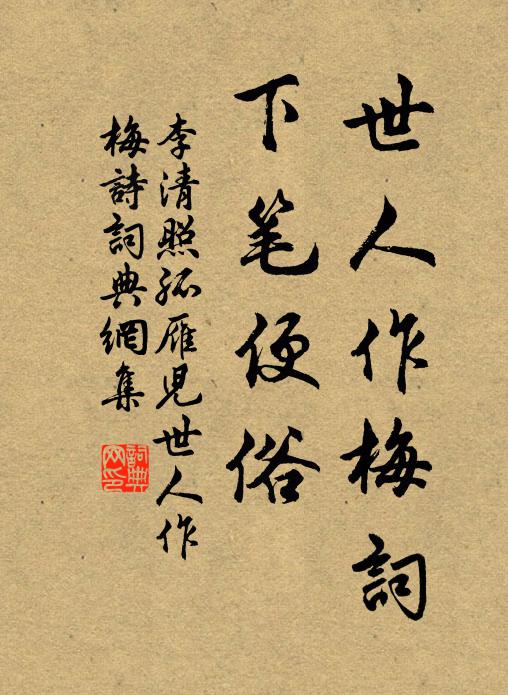 世人作梅詞
下笔便俗
李清照孤雁児世人作
梅詩詞典網集
詞典网印